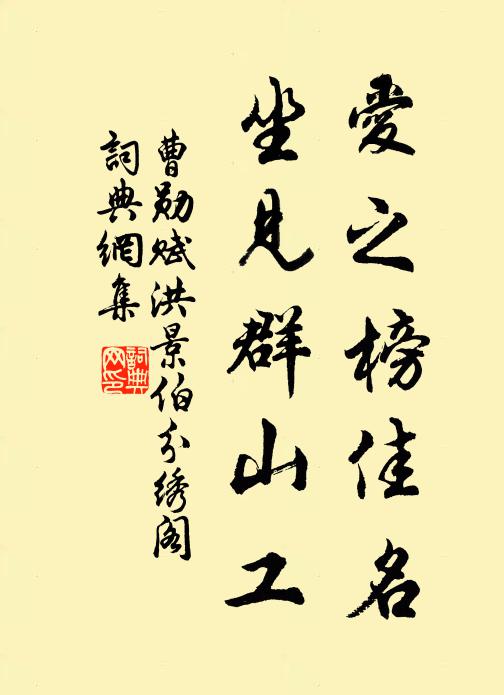 愛之榜佳名
坐見群山工
曹勛賦洪景伯分綉阁
詞典網集
詞典網印